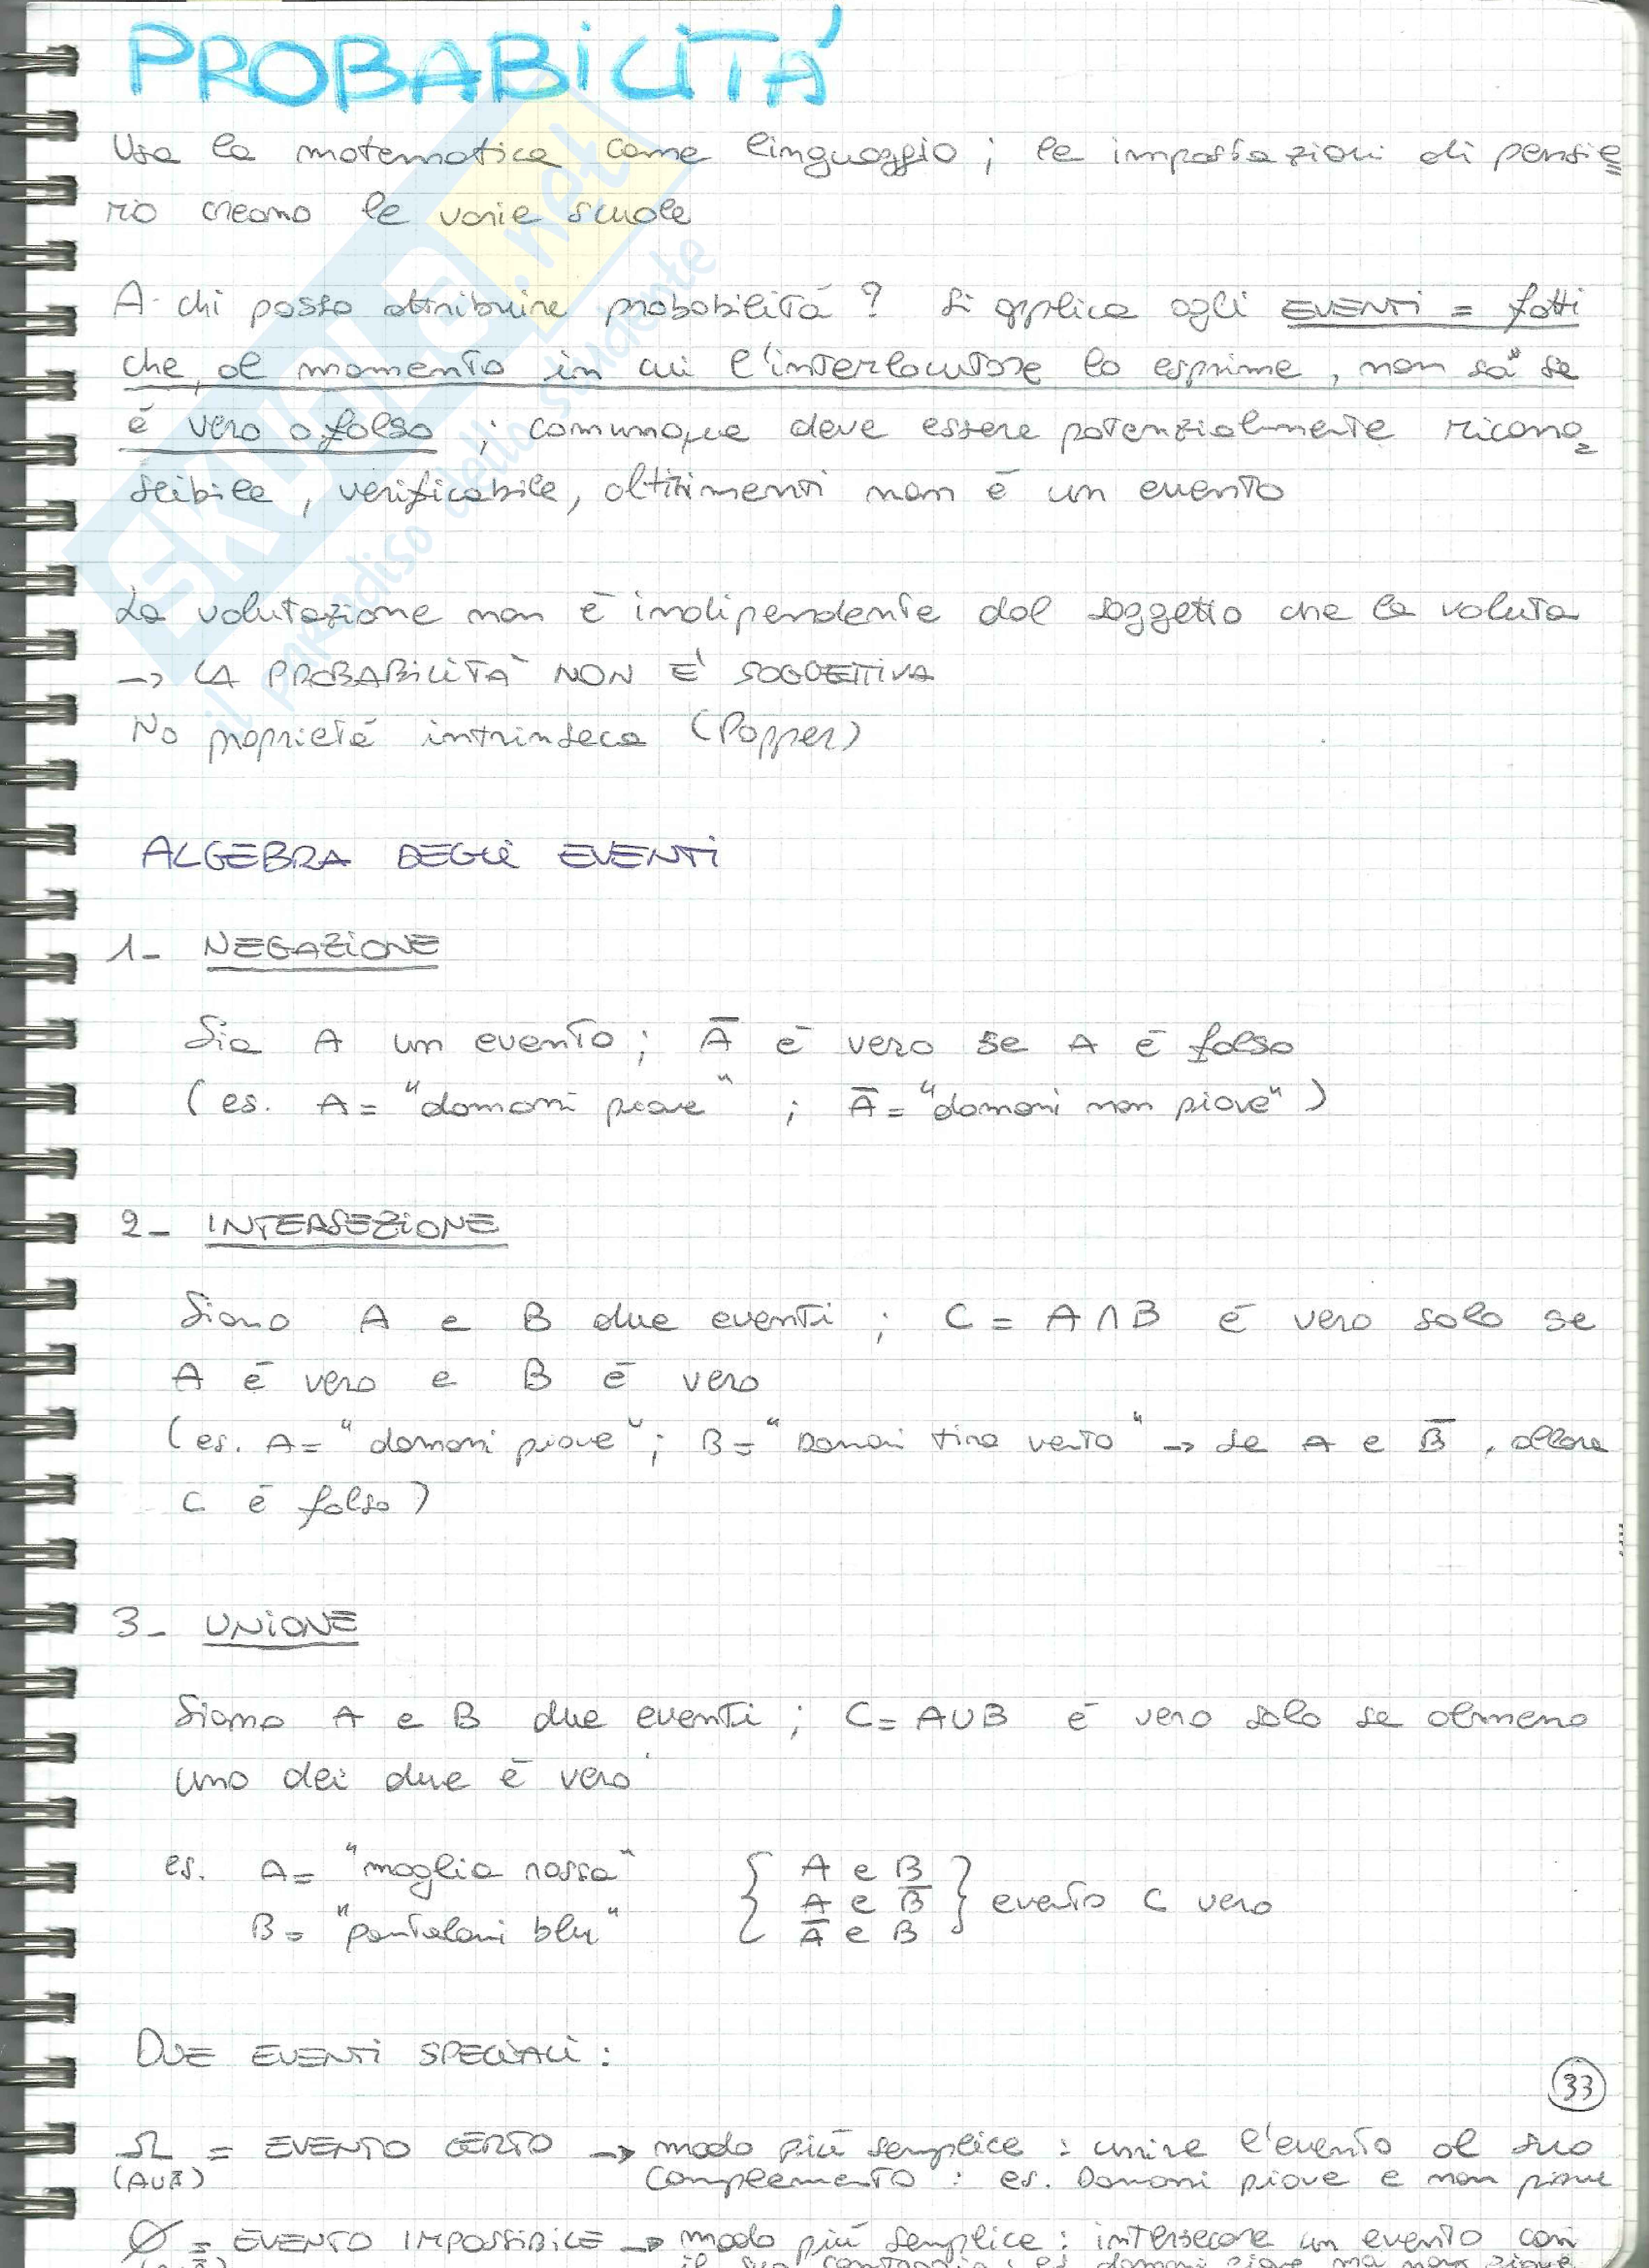 PROBABILITÁ
Usa la matematica come linguaggio ; le impostazioni di pensie
ro creano le varie scuole
A chi posso attribuire probabilitá ? Si applica agli EVENTI = fatti
che, al momento in cui l'interlocutore lo esprime, non sa se
é vero o falso ; comunque deve essere potenzialmente ricono
scibile, verificabile, altrimenti non é un evento
La valutazione non é indipendente dal soggetto che la valuta
→ LA PROBABILITÀ NON É SOGGETTIVA
No proprietá intrinseca (Popper)
ALGEBRA DEGLI EVENTI
1- NEGAZIONE
Sia A un evento ; Ā é vero se A é falso
(es. A = "domani piove" ; Ā = "domani non piove")
2- INTERSEZIONE
Siano A e B due eventi ; C = A∩B é vero solo se
A é vero e B é vero
(es. A= "domani piove"; B= "Domani tira vento" → se A e B̅, allora
C é falso)
3- UNIONE
Siano A e B due eventi ; C= A∪B é vero solo se almeno
uno dei due é vero
es. A= "maglia rossa" { A e B
A e B̅ } evento C vero
B= "pantaloni blu" Ā e B
DUE EVENTI SPECIALI :
33
Ω = EVENTO CERTO → modo piú semplice : unire l'evento al suo
(A∪Ā) complemento : es. Domani piove e non piove
∅ = EVENTO IMPOSSIBILE → modo piú semplice : intersecare un evento con
SKUOLA.net
il paradiso dello studente